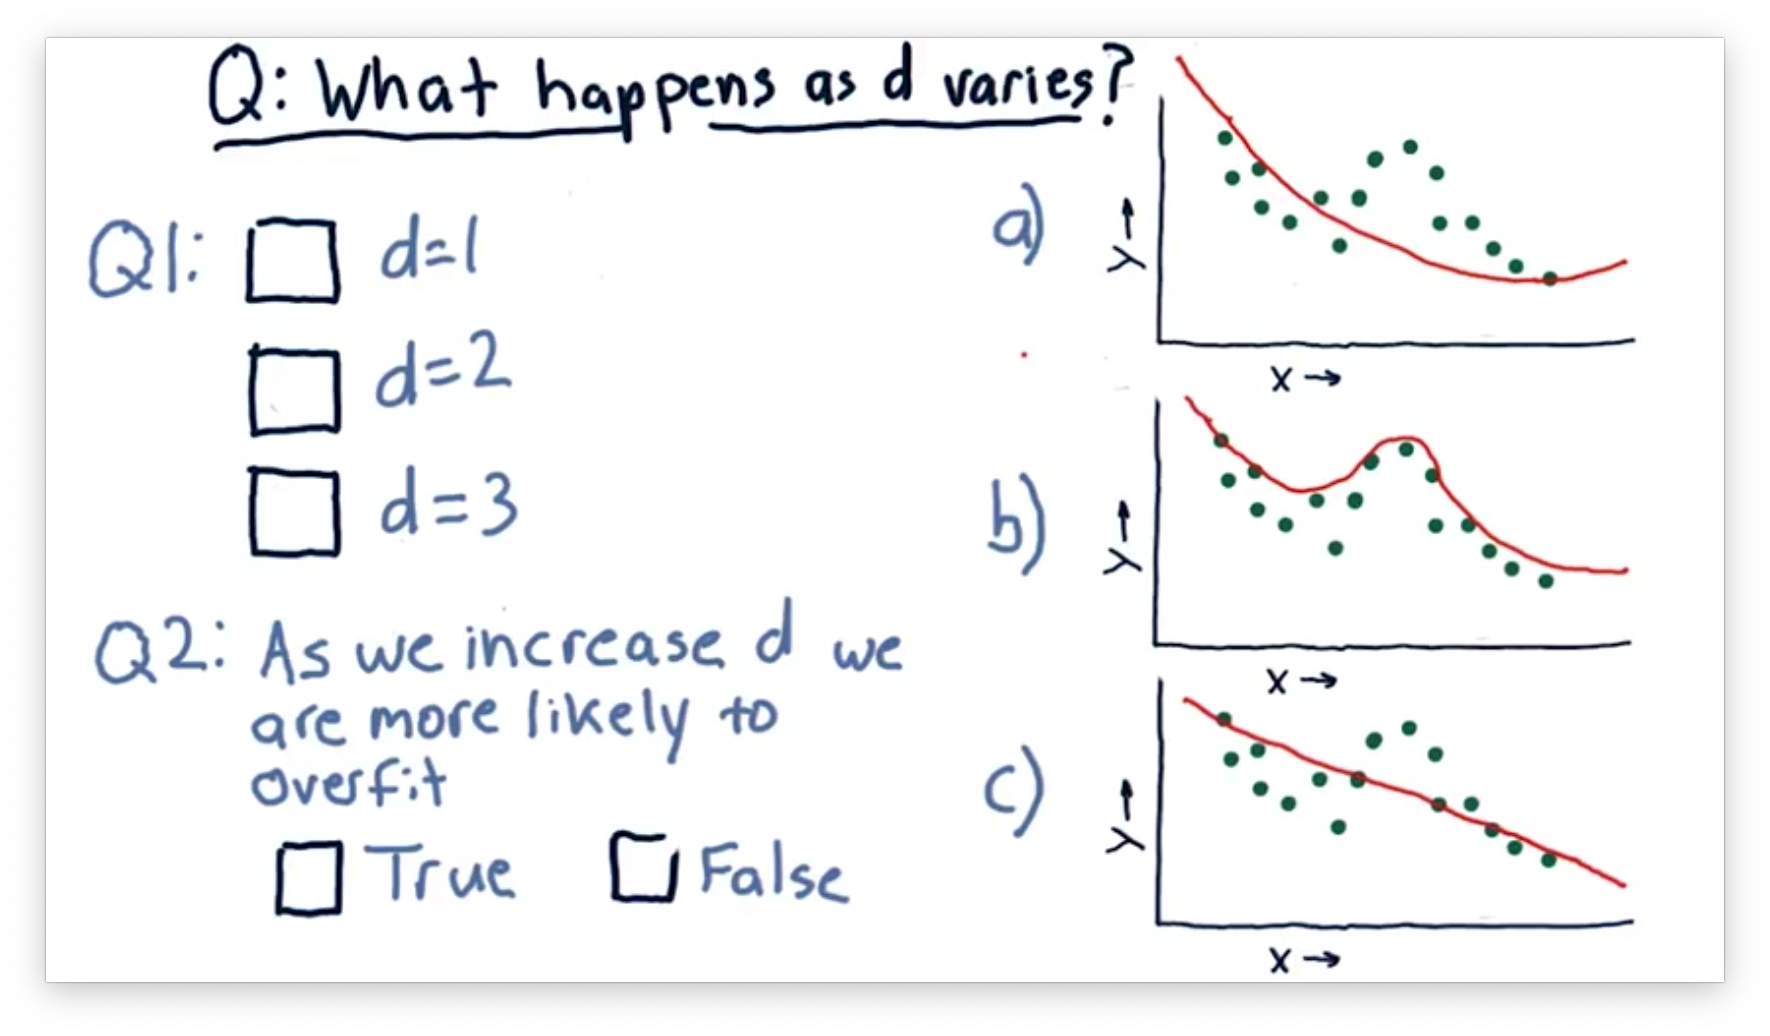 Q: What happens as d varies?
Q1: d=1
d=2
d=3
Q2: As we increase d we
are more likely to
overfit
True False
a)
Y→
X→
b)
Y→
X→
c)
Y→
X→